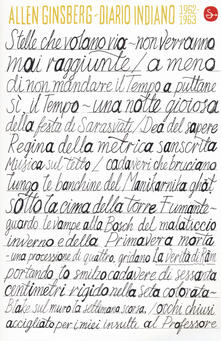 ALLEN GINSBERG-DIARIO INDIANO 1962-
1963
Stelle che volano via ~ non verranno
mai raggiunte / a meno
di non mandare il Tempo a puttane
Sì, il Tempo ~ una notte gioiosa
della festa di Sarasvaty / Dea del sapere
Regina della metrica sanscrita
Musica sul tetto / cadaveri che bruciano
lungo le banchine del Manikarnika ghat
Sotto la cima della torre Fumante ~
guardo le vampe alla Bosch del malaticcio
inverno e della Primavera morta
~ una processione di quattro, gridano La Verità di Ram
portando lo smilzo cadavere di sessanta
centimetri rigido nella seta colorata ~
Blake sul muro la settimana scorsa, Occhi chiusi
accigliato per i miei insulti al Professore